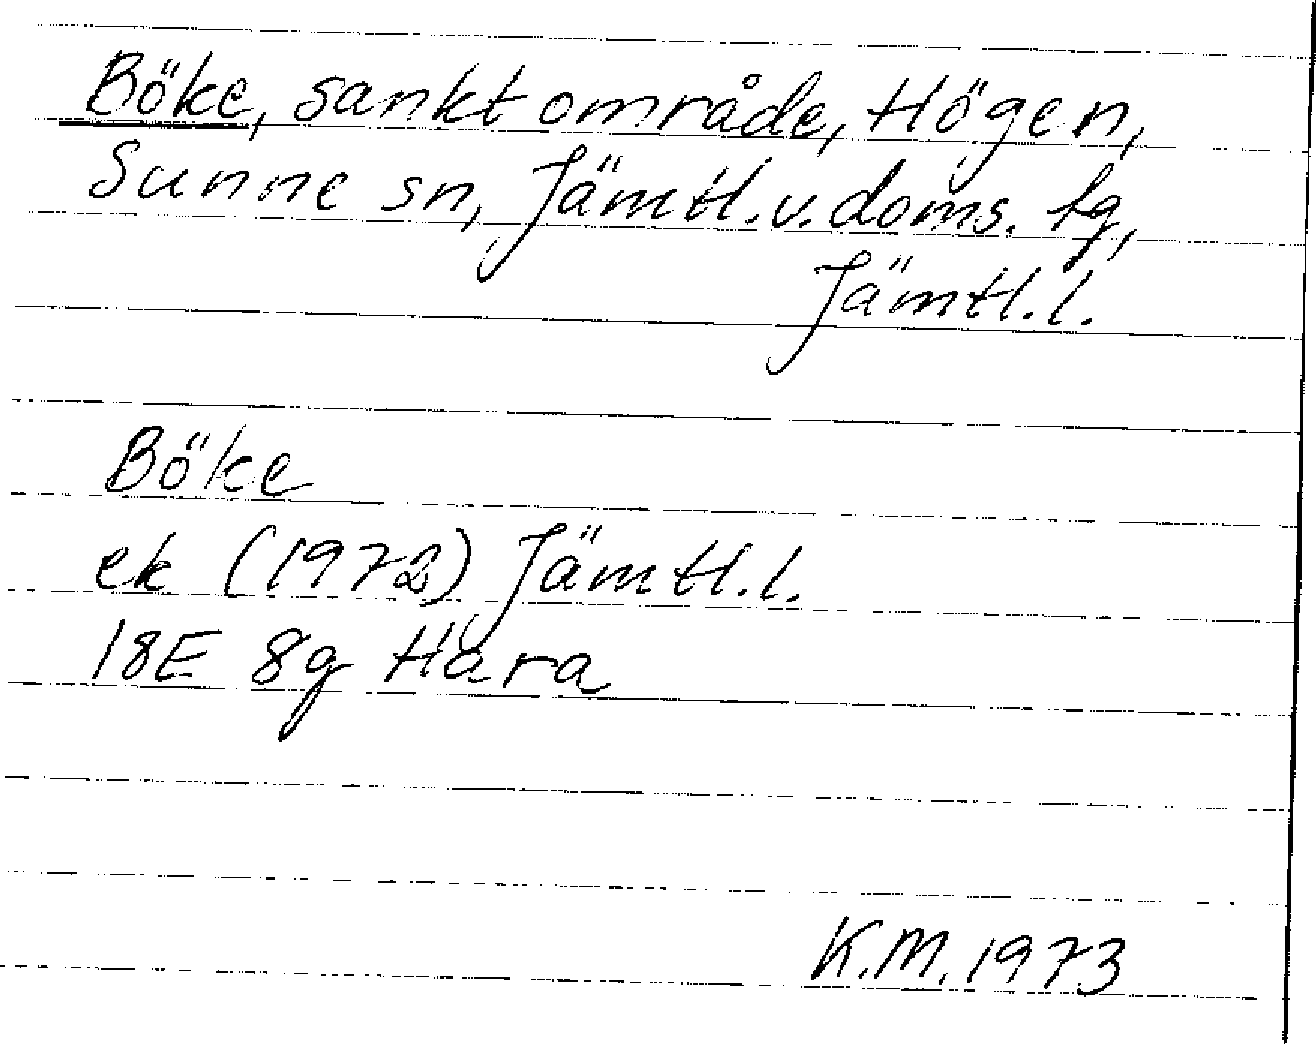 Böke, sankt område, Högen,
Sunne sn, Jämtl.v.doms. tg,
Jämtl.l.
Böke
ek (1972) Jämtl.l.
18E 8g Hara
K.M.1973